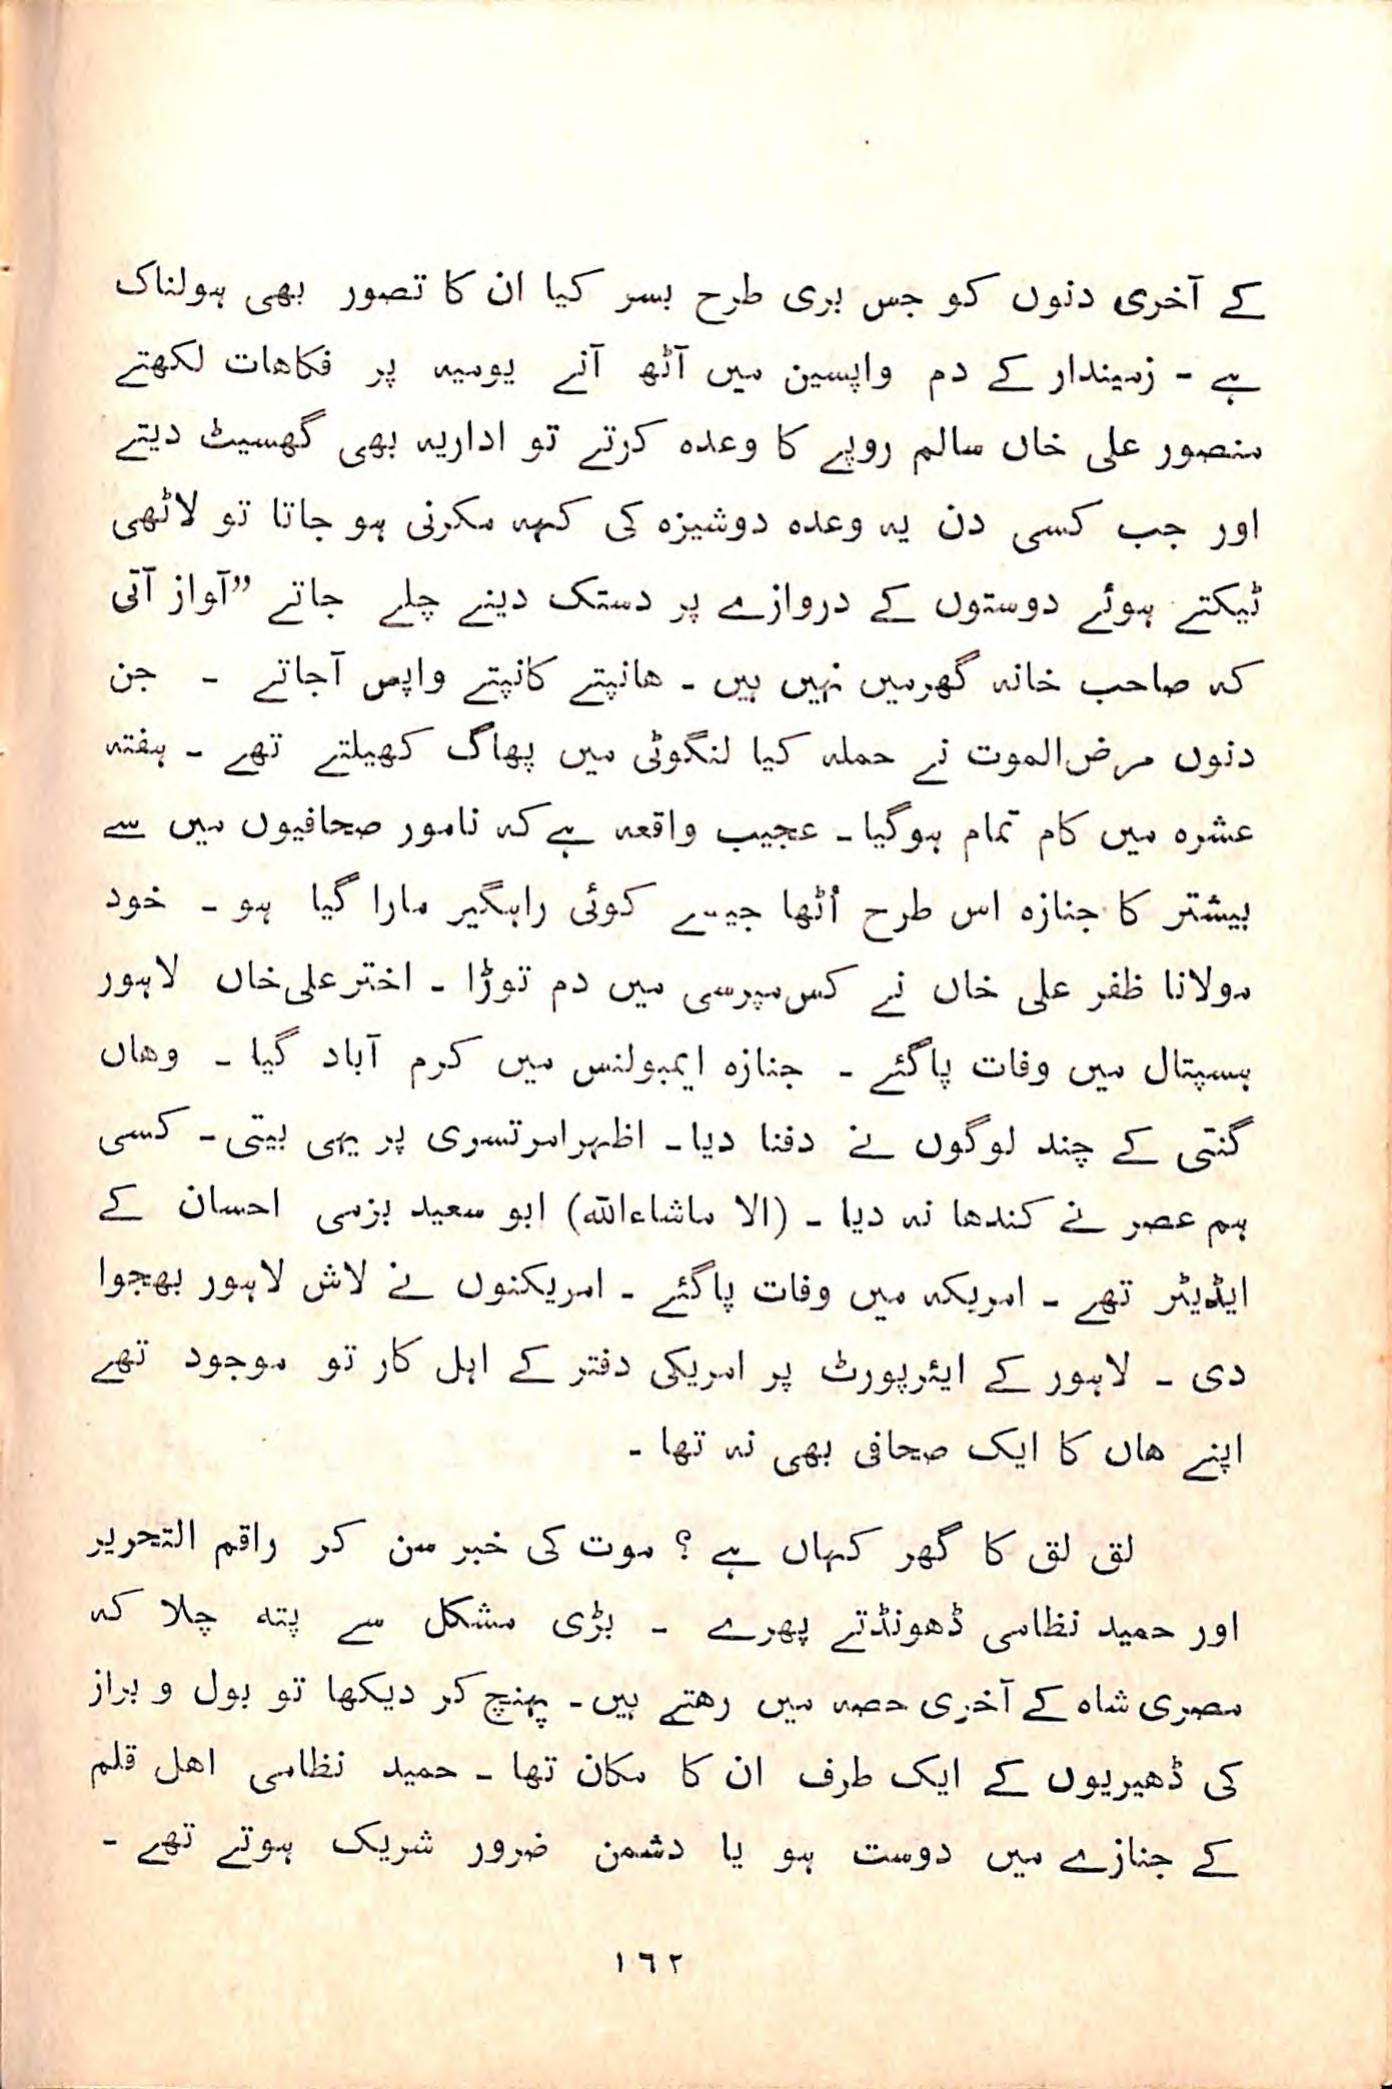 کے آخری دنوں کو جس بری طرح بسر کیا ان کا تصور بھی ہولناک
ہے - زمیندار کے دم واپسین میں آٹھ آنے یومیہ پر فکاھات لکھتے
منصور علی خاں سالم روپے کا وعدہ کرتے تو اداریہ بھی گھسیٹ دیتے
اور جب کسی دن یہ وعدہ دوشیزہ کی کہہ مکرنی ہو جاتا تو لاٹھی
ٹیکتے ہوئے دوستوں کے دروازے پر دستک دینے چلے جاتے ”آواز آتی
کہ صاحب خانہ گھرمیں نہیں ہیں - ھانپتے کانپتے واپس آجاتے - جن
دنوں مرض الموت نے حملہ کیا لنگوٹی میں پھاگ کھیلتے تھے - ہفتہ
عشرہ میں کام تمام ہوگیا - عجیب واقعہ ہے کہ نامور صحافیوں میں سے
بیشتر کا جنازہ اس طرح اُٹھا جیسے کوئی راہگیر مارا گیا ہو - خود
مولانا ظفر علی خاں نے کس مپرسی میں دم توڑا - اختر علی خاں لاہور
ہسپتال میں وفات پاگئے - جنازہ ایمبولنس میں کرم آباد گیا - وھاں
گنتی کے چند لوگوں نے دفنا دیا - اظہر امرتسری پر یہی بیتی - کسی
ہم عصر نے کندھا نہ دیا - (الا ماشاءاللہ) ابو سعید بزمی احسان کے
ایڈیٹر تھے - امریکہ میں وفات پاگئے - امریکنوں نے لاش لاہور بھجوا
دی - لاہور کے ایئرپورٹ پر امریکی دفتر کے اہل کار تو موجود تھے
اپنے ھاں کا ایک صحافی بھی نہ تھا -
لق لق کا گھر کہاں ہے ؟ موت کی خبر سن کر راقم التحریر
اور حمید نظامی ڈھونڈتے پھرے - بڑی مشکل سے پتہ چلا کہ
مصری شاہ کے آخری حصہ میں رھتے ہیں - پہنچ کر دیکھا تو بول و براز
کی ڈھیریوں کے ایک طرف ان کا مکان تھا - حمید نظامی اھل قلم
کے جنازے میں دوست ہو یا دشمن ضرور شریک ہوتے تھے -
١٦٢